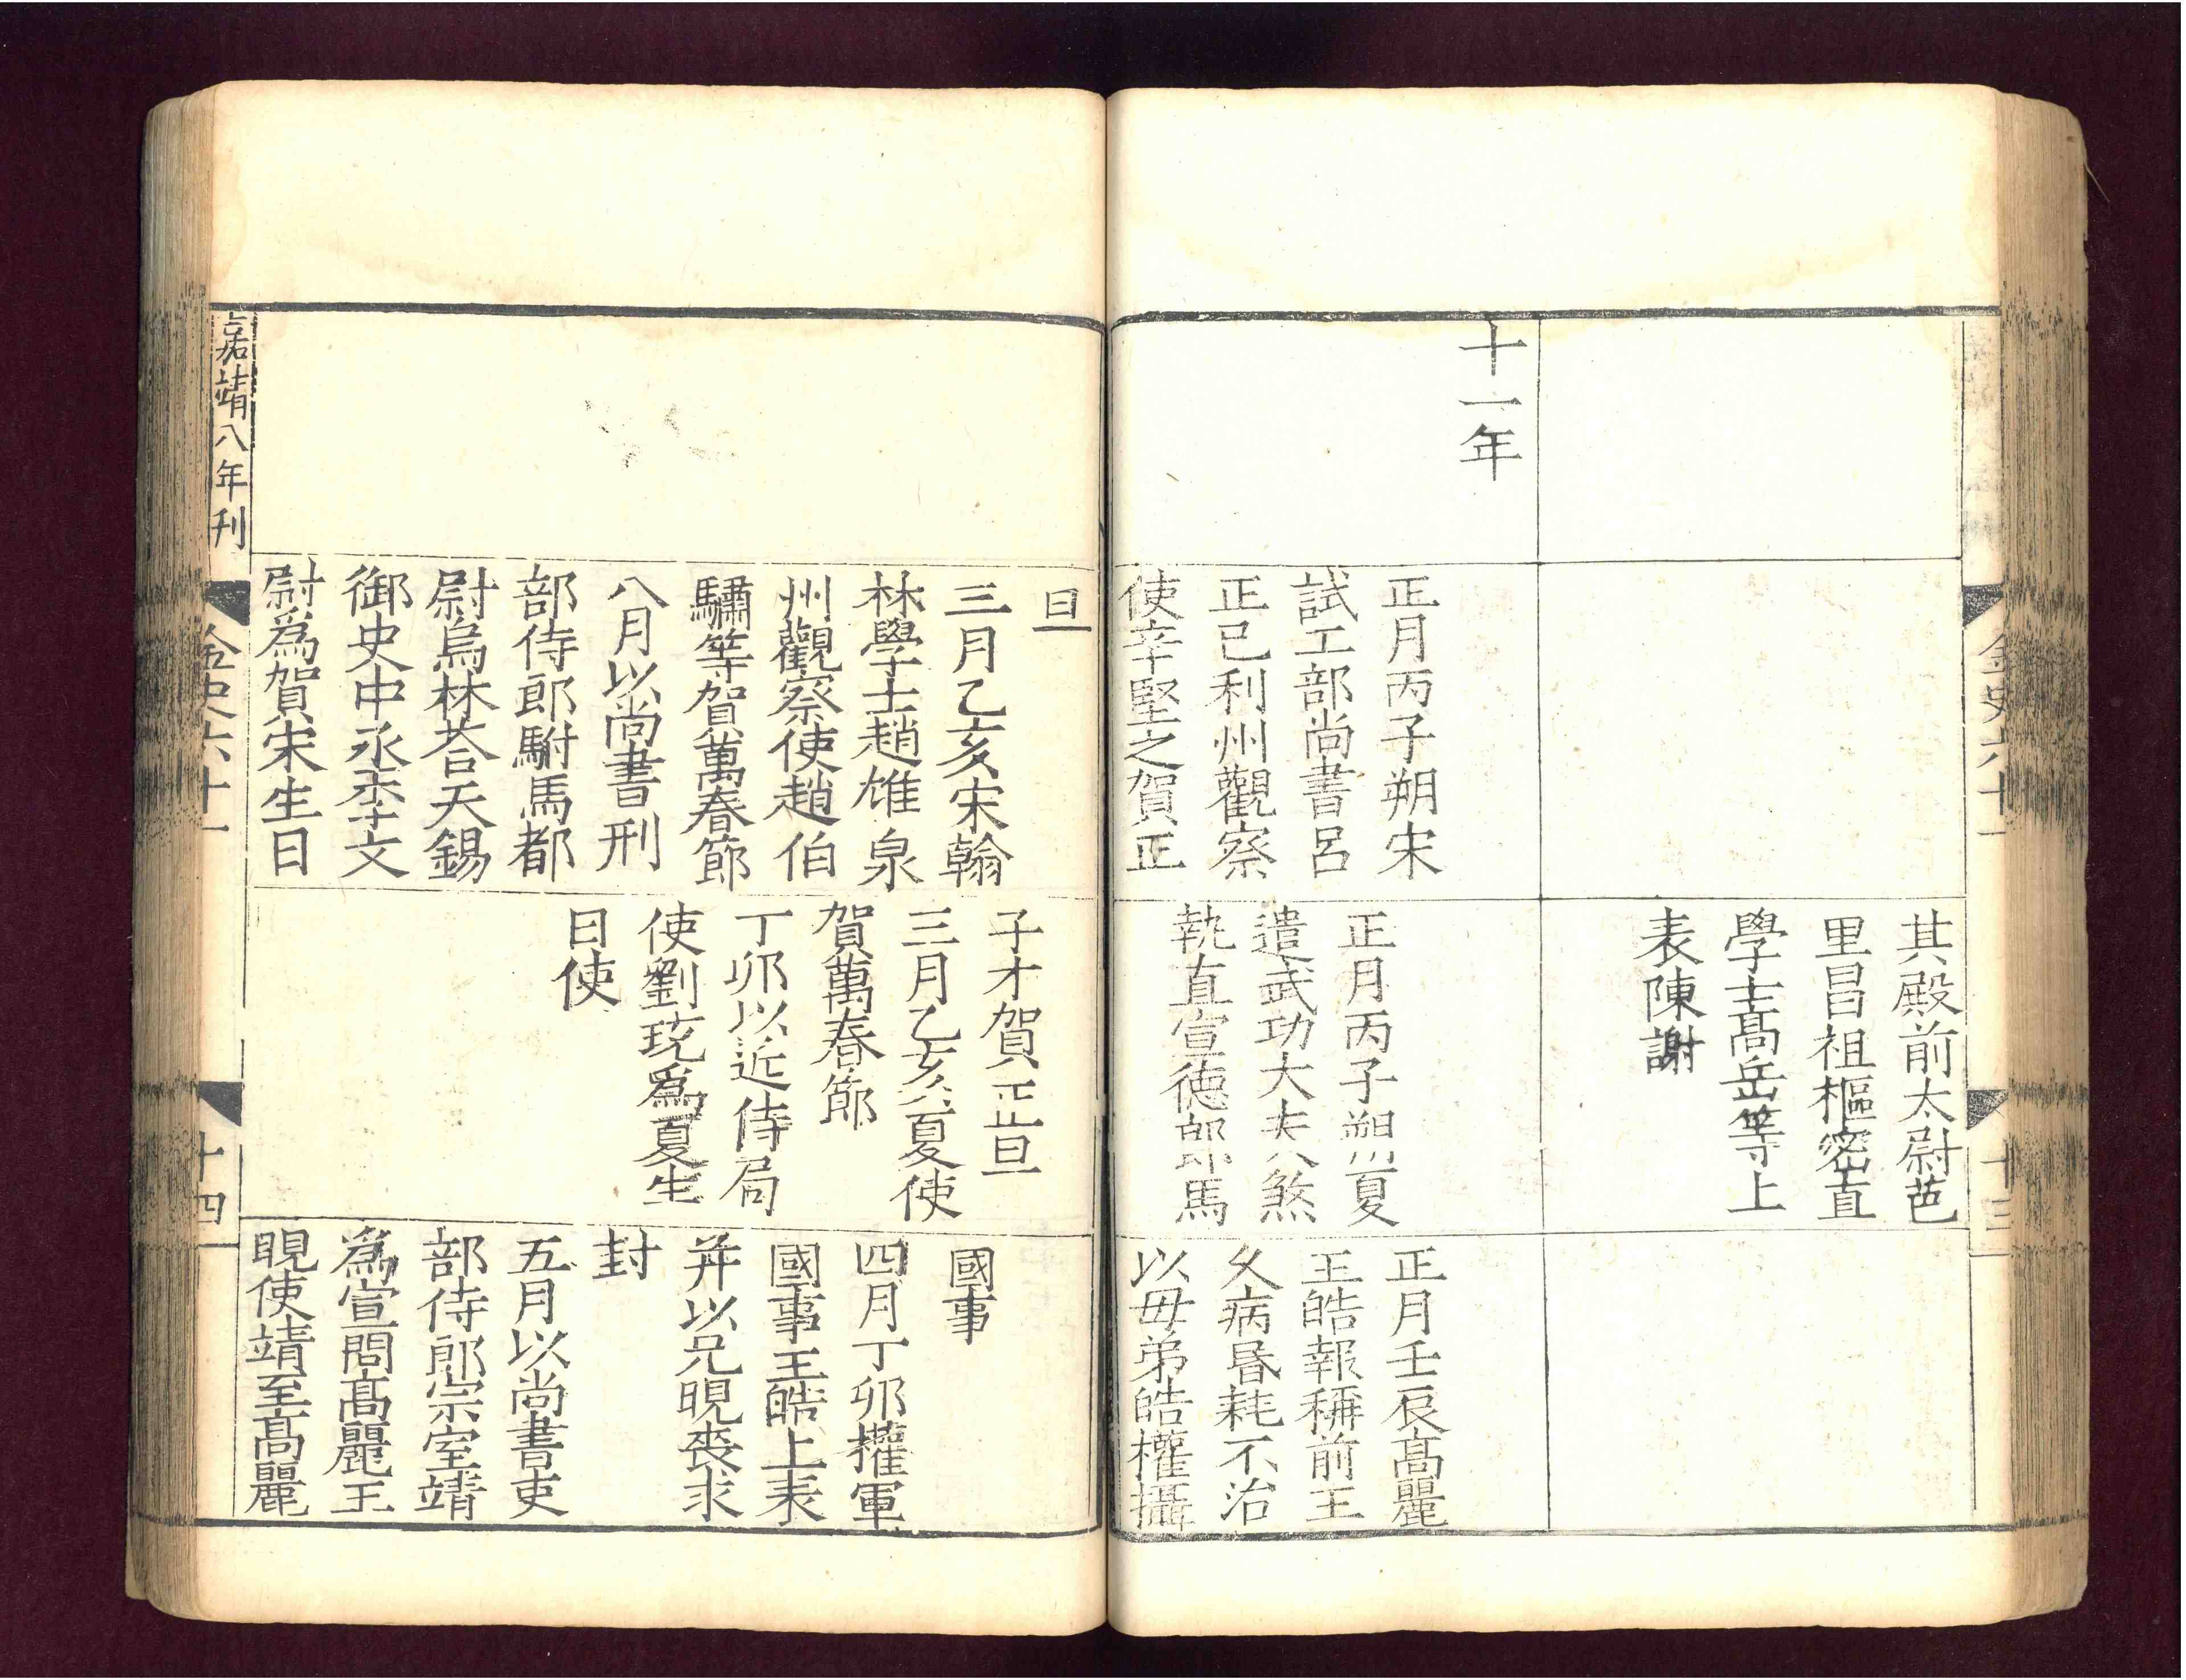 其殿前太尉芭
里昌祖樞密直
學士髙岳等上
表陳謝
十一年
正月丙子朔宋
試工部尚書呂
正己利州觀察
使辛堅之賀正
正月丙子朔夏
遣武功大夫煞
執直宣德郎馬
正月壬辰髙麗
王皓報稱前王
久病昬耗不治
以毋弟皓權攝
金史六十一
十三
旦
三月乙亥宋翰
林學士趙雄泉
州觀察使趙伯
驌等賀萬春節
八月以尚書刑
部侍郎駙馬都
尉烏林荅天錫
御史中丞李文
尉爲賀宋生日
子才賀正旦
三月乙亥夏使
賀萬春節
丁卯以近侍局
使劉珫爲夏生
日使
國事
四月丁卯權軍
國事王皓上表
并以兄晛喪求
封
五月以尚書吏
部侍郎宗室靖
爲宣問髙麗王
晛使靖至髙麗
嘉靖八年刊
金史六十一
十四